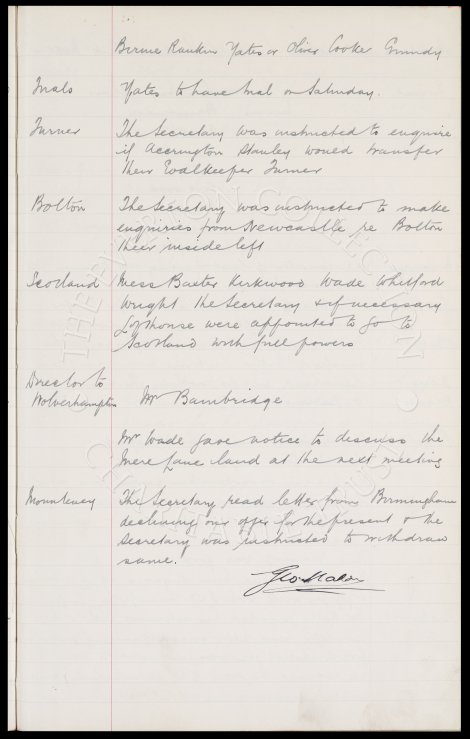 Birnie Rankin Yates or Oliver Cooke Grundy
Trials Yates to have trial on Saturday.
Turner The Secretary was instructed to enquire
if Accrington Stanley would transfer
their Goalkeeper Turner
Bolton The Secretary was instructed to make
enquiries from Newcastle re Bolton
their inside left
Scotland Mess Baxter Kirkwood Wade Whitford
Wright the Secretary & if necessary
Lofthouse were appointed to go to
Scotland with full powers
Director to
Wolverhampton Mr Bainbridge
Mr Wade gave notice to discuss the
Mere Lane land at the next meeting
Mounteney The Secretary read letter from Birmingham
declining our offer for the present & the
Secretary was instructed to withdraw
same.
Geo Mahon
THE EVERTON COLLECTION
CHARITABLE TRUST